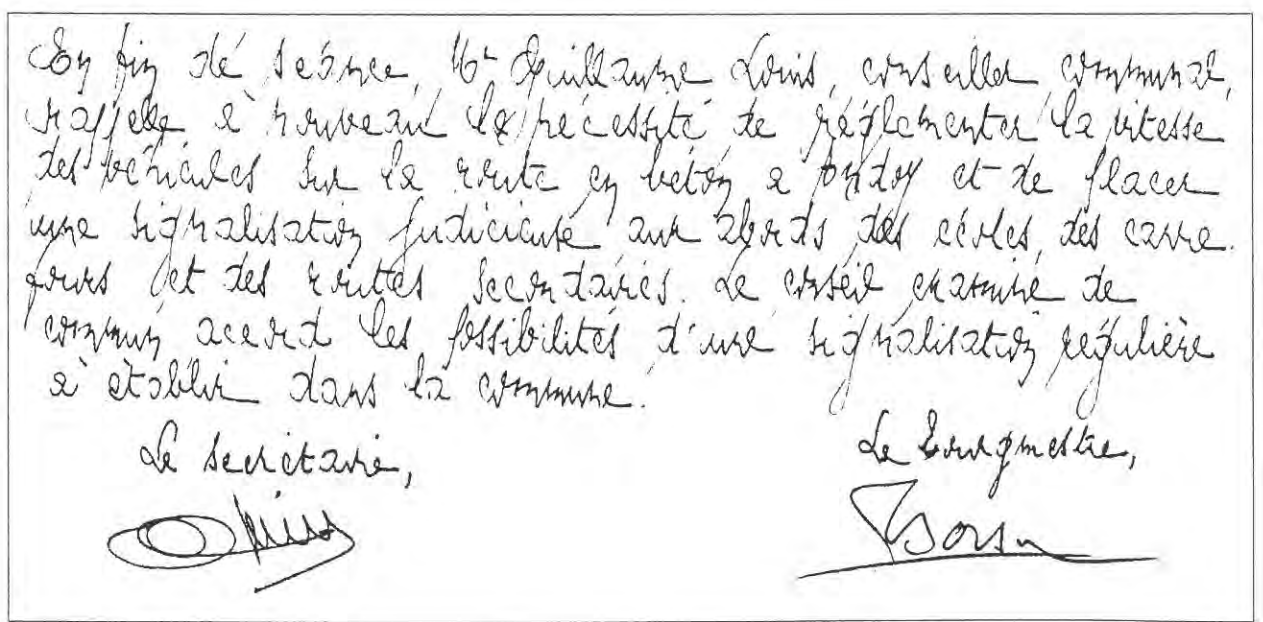 En fin de séance, Mr Guillaume Louis, conseiller communal,
rappelle à nouveau la nécessité de réglementer la vitesse
des véhicules sur la route en béton à Andoy et de placer
une signalisation judicieuse aux abords des écoles, des carre-
fours et des routes secondaires. Le conseil examine de
commun acord les possibilités d'une signalisation régulière
à établir dans la commune.
Le Secrétaire,
Le Bourgmestre,